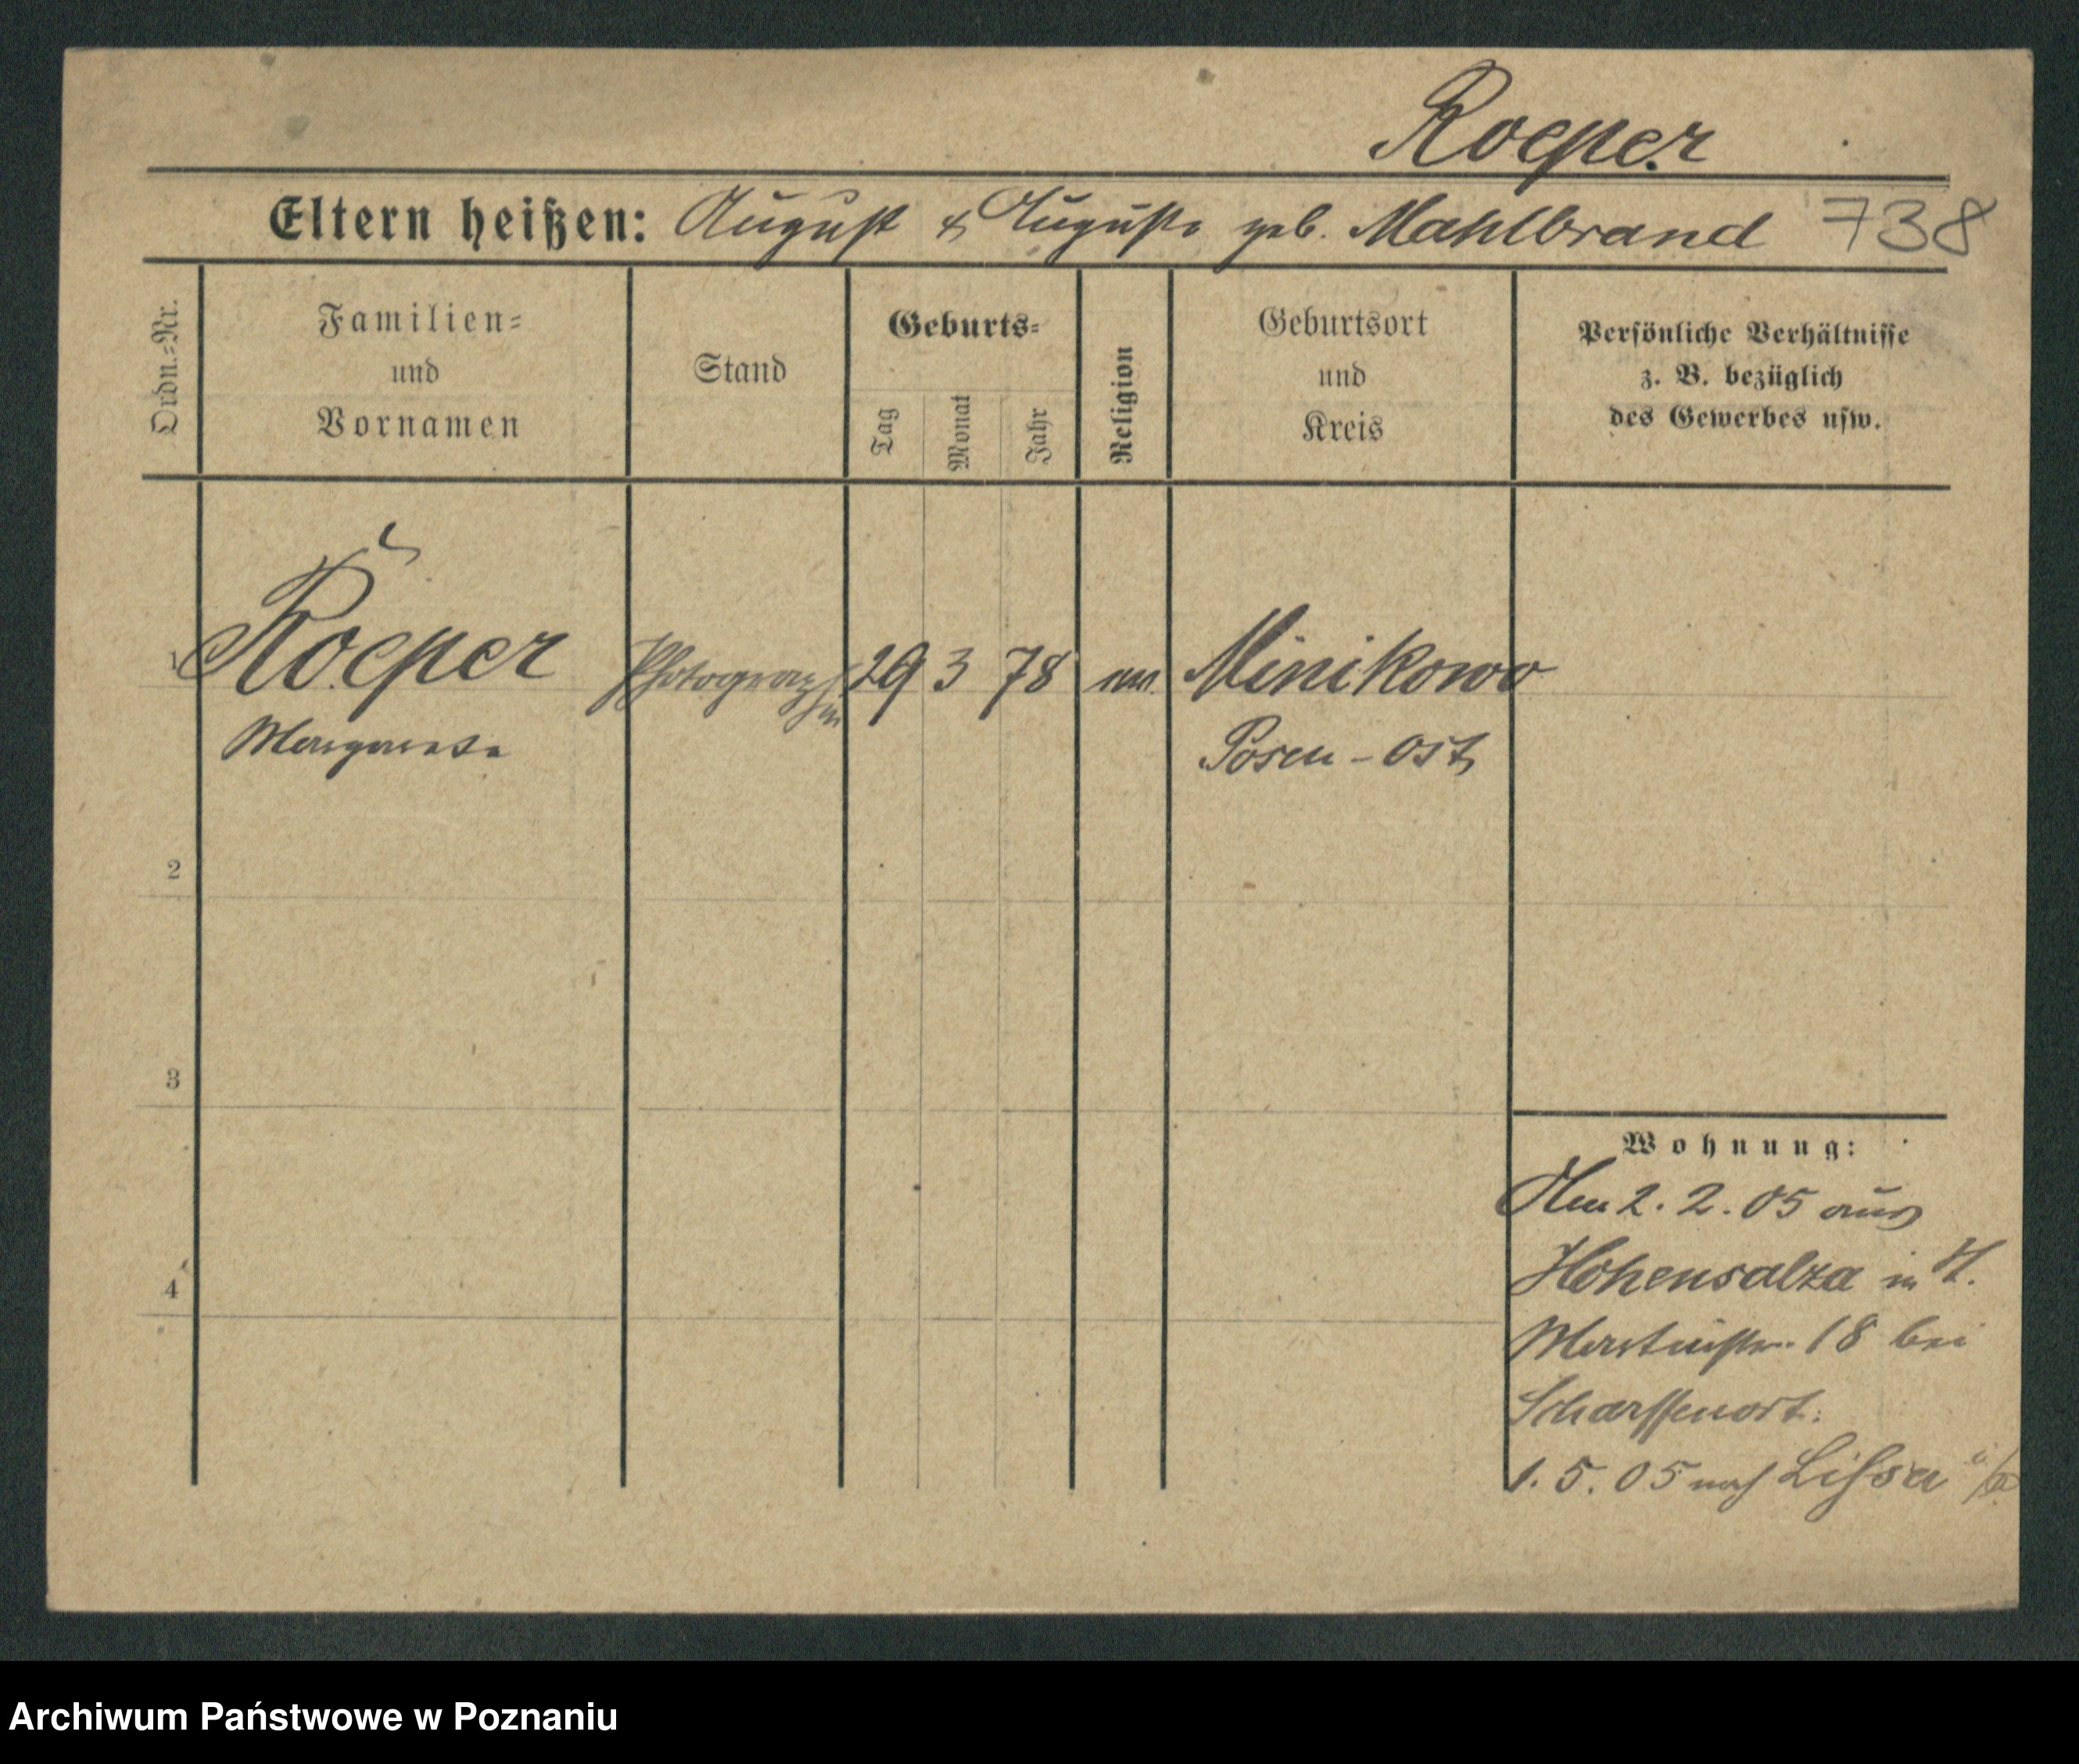 Roeper
Eltern heißen: August & Auguste geb. Mahlbrand 738
Ordn.-Nr.
Familien-
und
Vornamen
Stand
Geburts-
Tag
Monat
Jahr
Religion
Geburtsort
und
Kreis
Persönliche Verhältnisse
z. B. bezüglich
des Gewerbes usw.
1 Roeper Photograph 29 3 78 Minikowo
in
Margarete Posen-Ost
2
3
4
Wohnung:
2. 2. 05 aus
Hohensalza in H.
18 bei
Scharffenort.
1. 5. 05 nach Lissa
Archiwum Państwowe w Poznaniu